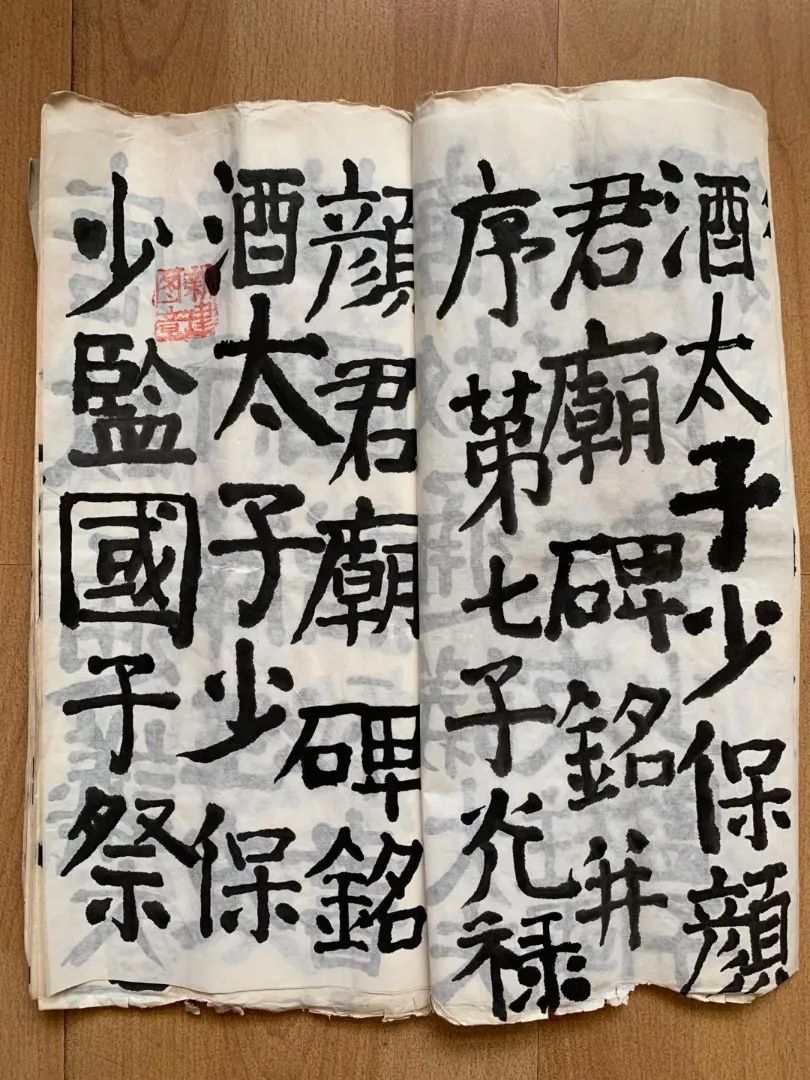 酒太子少保顔
君廟碑銘并
序第七子光禄
顔君廟碑銘
酒太子少保
少監國子祭